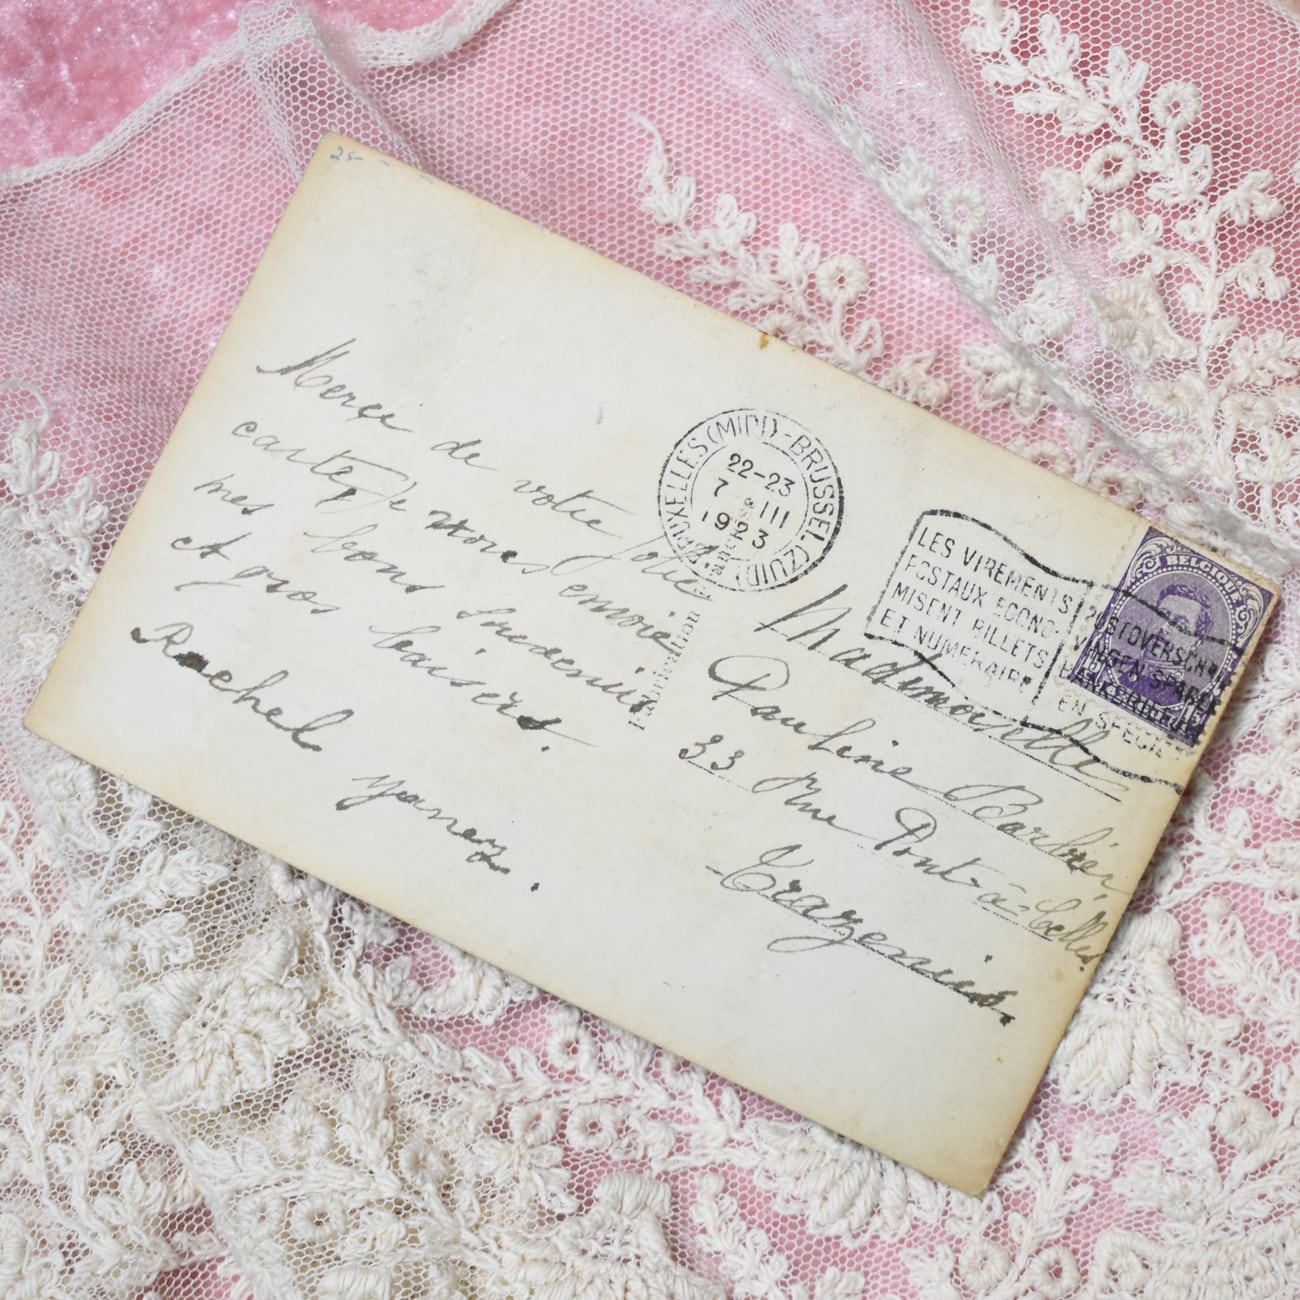 25-
Merçi de votre jolie
carte, je vous envoie
mes bons souvenirs
et gros baisers.
Rachel
yanez.
BRUXELLES (MIDI)-BRUSSEL (ZUID)
22-23
7 III
1923
LES VIREMENTS
POSTAUX ECONO-
MISENT BILLETS
ET NUMERAIRE
POSTOVERSCHR
VINGEN SPAREN
BANKBRIEFJES
EN SPECIE
BELGIQUE
Mademoiselle
Pauline Barbier
33 Rue Pont-à-Celles
Trazegnies.